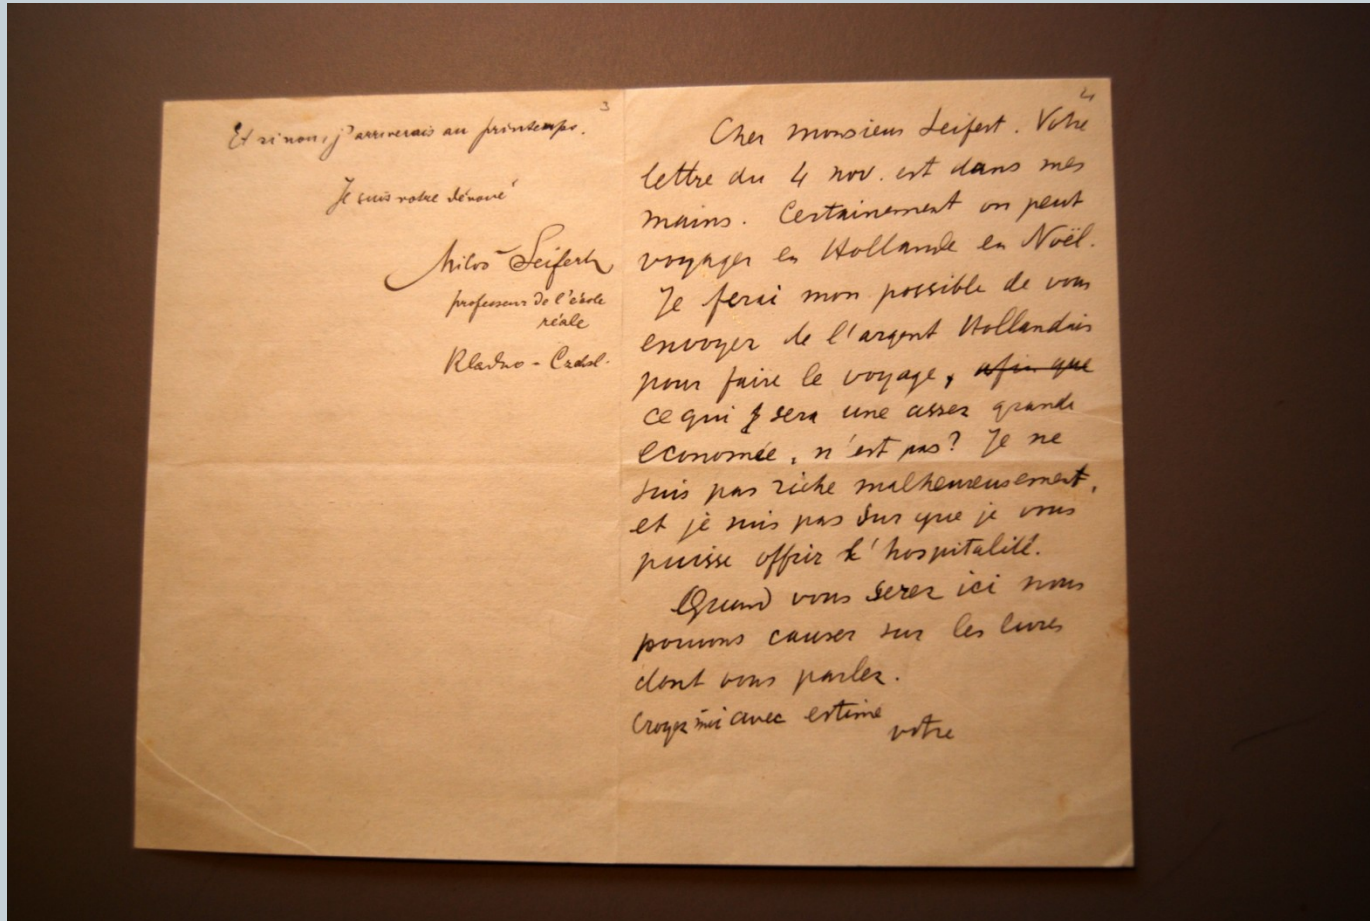 3
Et si non, j'arriverais au printemps.
Je suis votre dévoué
Miloš Seifert
professeur de l'école
réale
Kladno - Czchsl.
4
Cher monsieur Seifert. Votre
lettre du 4 nov. est dans mes
mains. Certainement on peut
voyager en Hollande en Noël.
Je ferai mon possible de vous
envoyer de l'argent Hollandais
pour faire le voyage, afin que
ce qui sera une assez grande
économie, n'est pas? Je ne
suis pas riche malheureusement,
et je suis pas sur que je vous
puisse offrir l'hospitalité.
Quand vous serez ici nous
pouvons causer sur les livres
dont vous parlez.
Croyez moi avec estime
votre